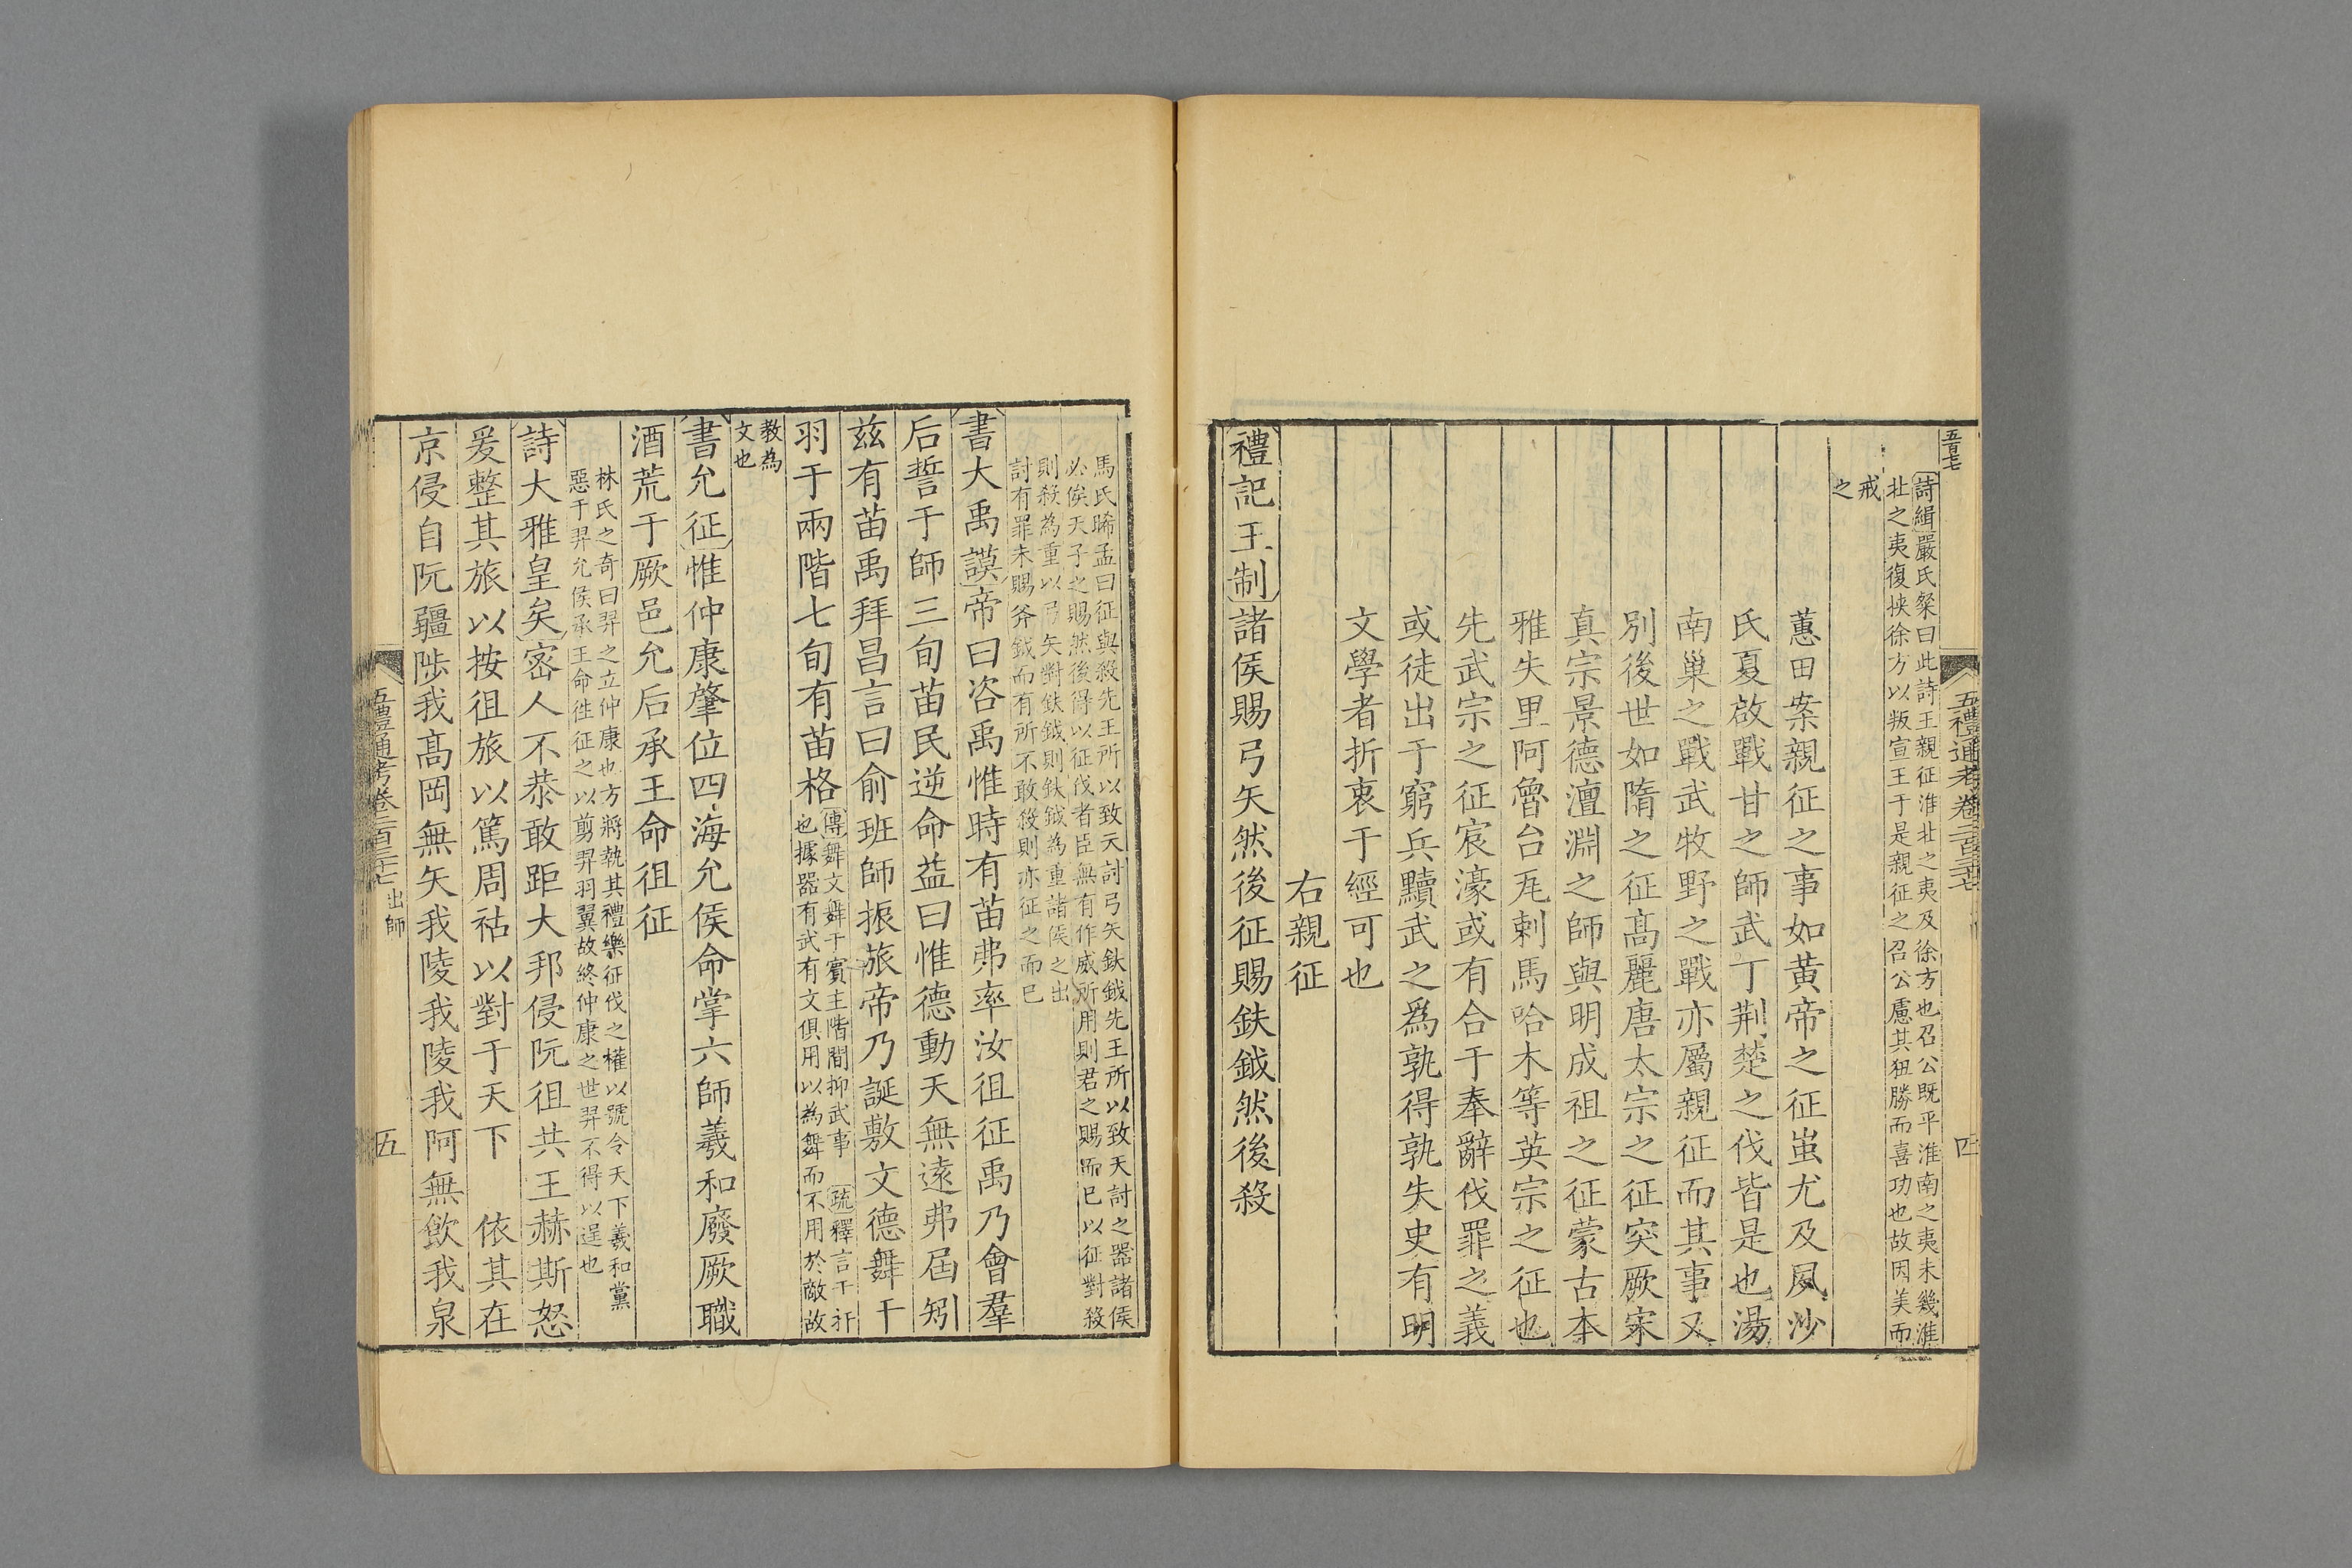 五百七
五禮通考卷二百三十七
四
詩緝嚴氏粲曰此詩王親征淮北之夷及徐方也召公既平淮南之夷未幾淮
北之夷復挾徐方以叛宣王于是親征之召公慮其狃勝而喜功也故因美而
戒
之
蕙田案親征之事如黃帝之征蚩尤及夙沙
氏夏啟戰甘之師武丁荆楚之伐皆是也湯
南巢之戰武牧野之戰亦屬親征而其事又
別後世如隋之征髙麗唐太宗之征突厥宋
真宗景德澶淵之師與明成祖之征蒙古本
雅失里阿魯台瓦剌馬哈木等英宗之征也
先武宗之征宸濠或有合于奉辭伐罪之義
或徒出于窮兵黷武之爲孰得孰失史有明
文學者折衷于經可也
右親征
禮記王制諸侯賜弓矢然後征賜鈇鉞然後殺
馬氏晞孟曰征與殺先王所以致天討弓矢鈇鉞先王所以致天討之器諸侯
必俟天子之賜然後得以征伐者臣無有作威所用則君之賜而已以征對殺
則殺為重以弓矢對鈇鉞則鈇鉞為重諸侯之出
討有罪未賜斧鉞而有所不敢殺則亦征之而已
書大禹謨帝曰咨禹惟時有苗弗率汝徂征禹乃會羣
后誓于師三旬苗民逆命益曰惟德動天無遠弗屆矧
兹有苗禹拜昌言曰俞班師振旅帝乃誕敷文德舞干
羽于兩階七旬有苗格
傳舞文舞于賓主階間抑武事 疏釋言干扞
也據器有武有文俱用以為舞而不用於敵故
教為
文也
書允征惟仲康肇位四海允侯命掌六師羲和廢厥職
酒荒于厥邑允后承王命徂征
林氏之奇曰羿之立仲康也方將執其禮樂征伐之權以號令天下羲和黨
惡于羿允侯承王命徃征之以剪羿羽翼故終仲康之世羿不得以逞也
詩大雅皇矣密人不恭敢距大邦侵阮徂共王赫斯怒
爰整其旅以按徂旅以篤周祜以對于天下 依其在
京侵自阮疆陟我髙岡無矢我陵我陵我阿無飲我泉
五禮通考卷二百三十七 出師
五